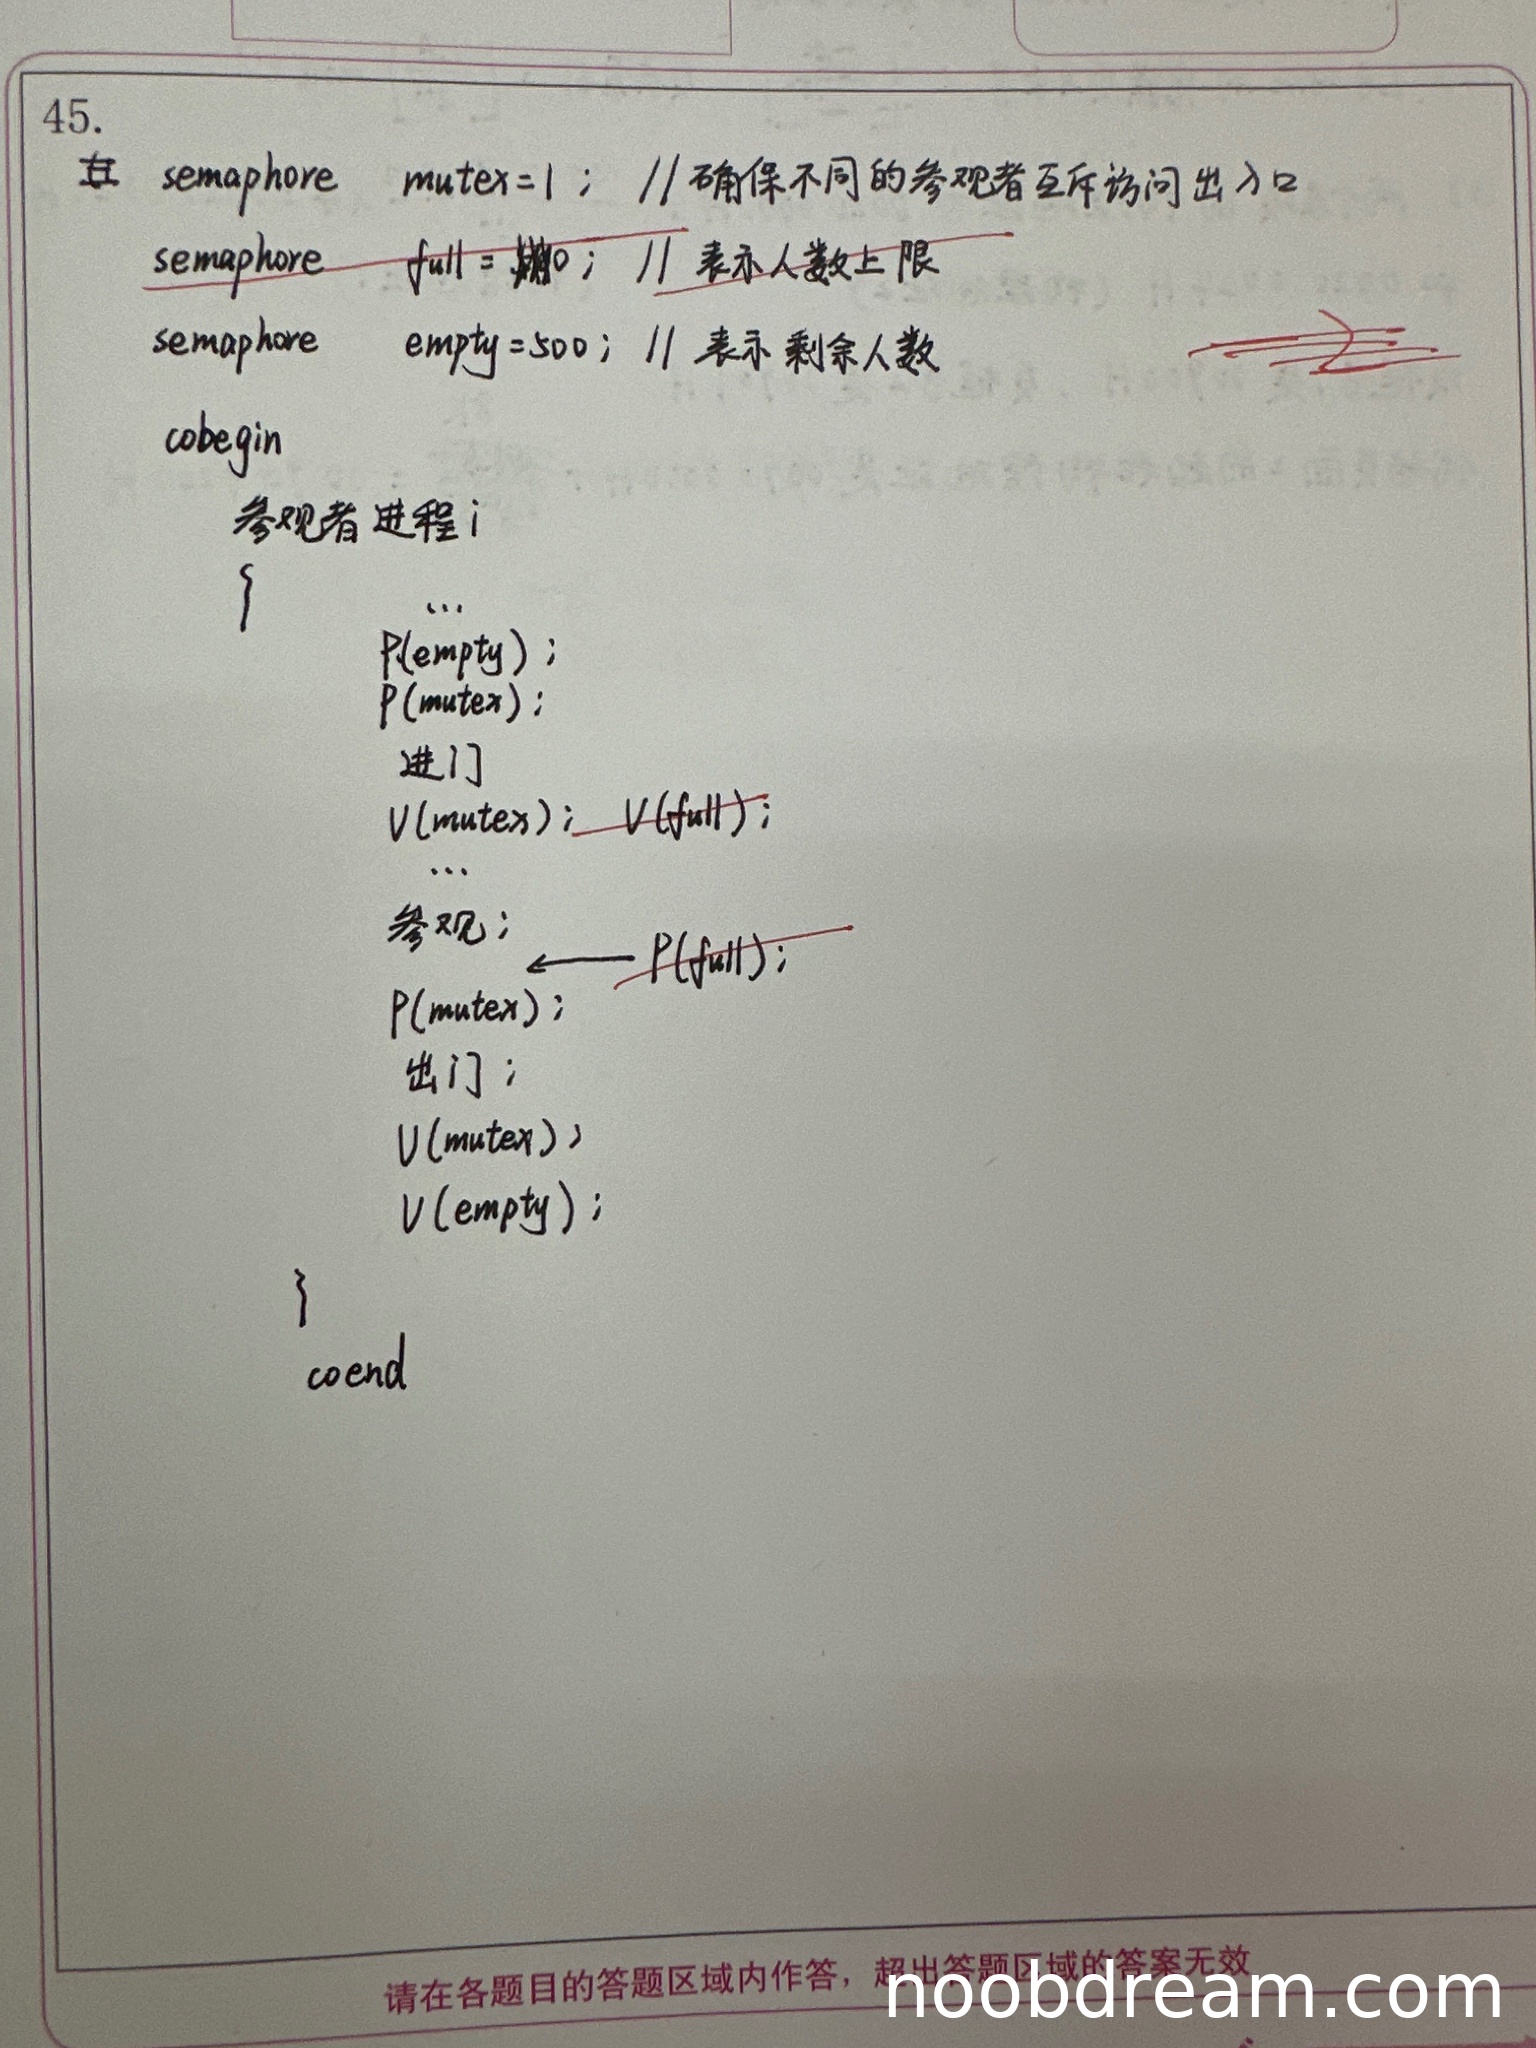 45.
semaphore mutex=1; //确保不同的参观者互斥访问出入口
semaphore full = 0; // 表示人数上限
semaphore empty=500; // 表示剩余人数
cobegin
参观者进程i
{
...
P(empty);
P(mutex);
进门
V(mutex); V(full);
...
参观;
← P(full);
P(mutex);
出门;
V(mutex);
V(empty);
}
coend
请在各题目的答题区域内作答，超出答题区域的答案无效
noobdream.com